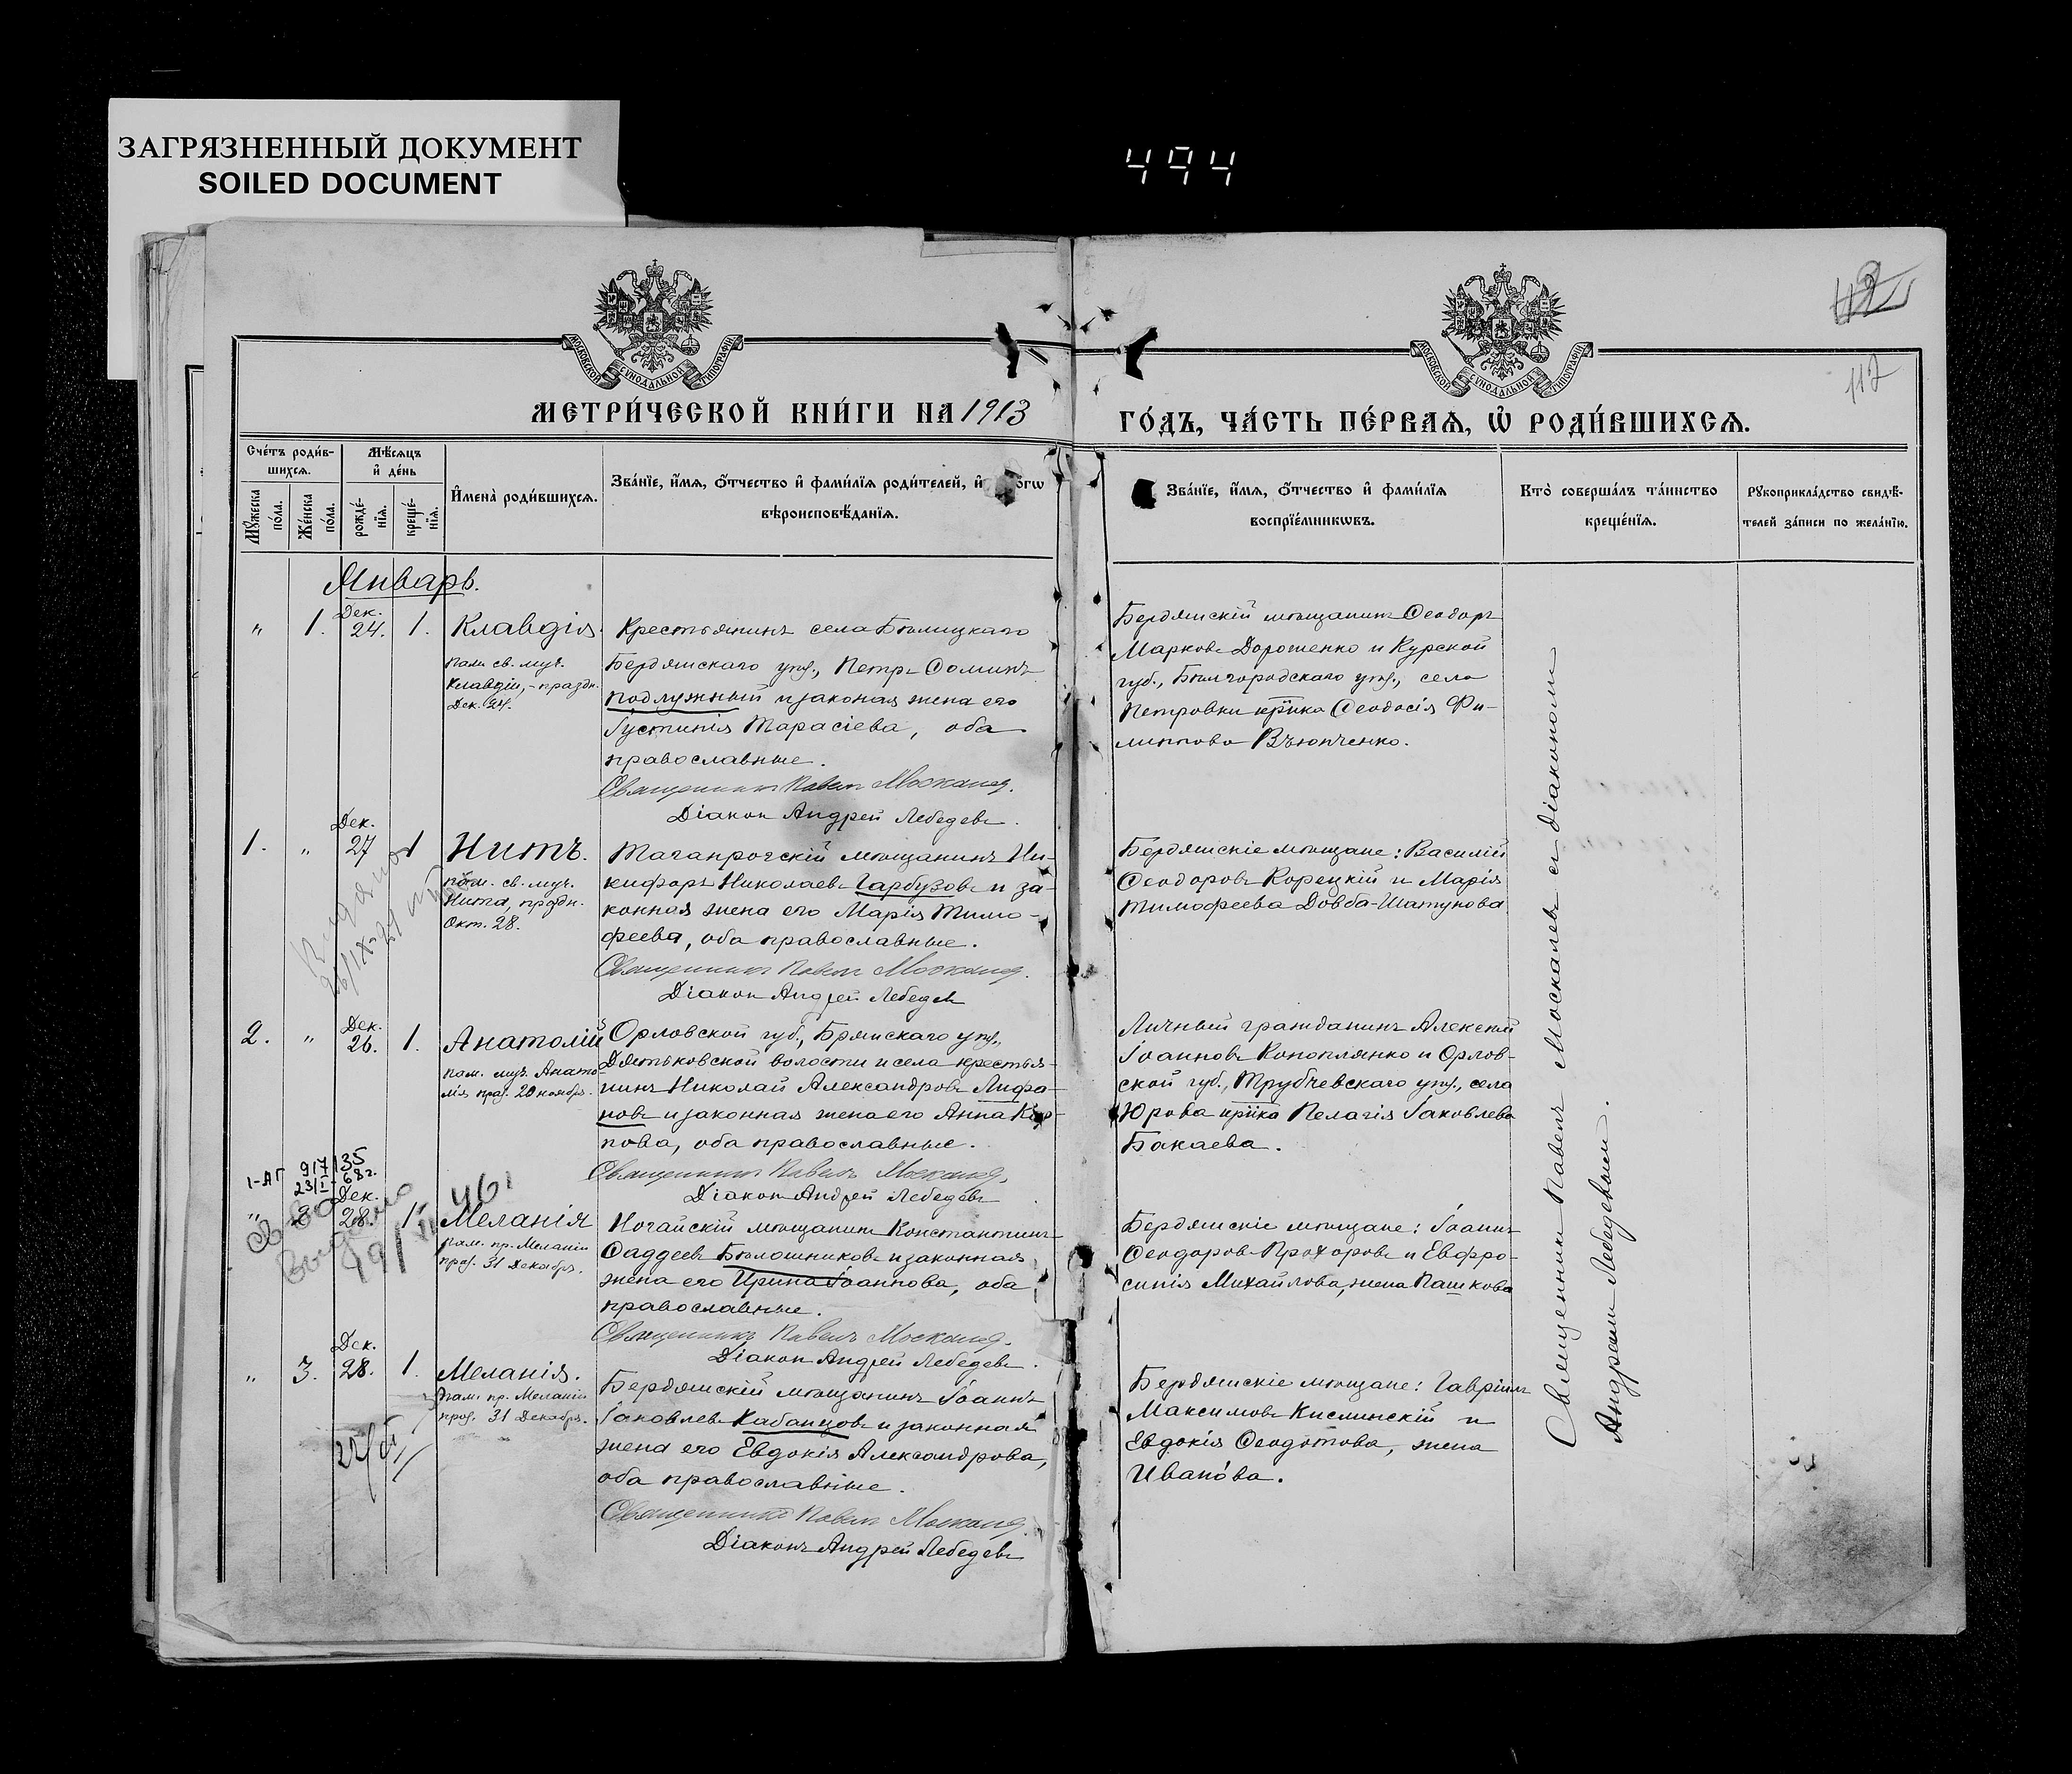 ЗАГРЯЗНЕННЫЙ ДОКУМЕНТ
SOILED DOCUMENT
494
112
МОСКОВСКОЙ СУНОДАЛЬНОЙ ТИПОГРАФІИ
МОСКОВСКОЙ СУНОДАЛЬНОЙ ТИПОГРАФІИ
МЕТРИ́ЧЕСКОЙ КНИ́ГИ НА 1913
ГО́ДЪ, ЧА́СТЬ ПЕ́РВАѦ, Ѽ РОДИ́ВШИХСѦ.
Сче́тъ роди́в-
шихсѧ.
Мꙋ́жеска
по́ла.
Же́нска
по́ла.
Мѣ́сѧцъ
и҆ де́нь
рожде́-
нїѧ.
креще́-
нїѧ.
И҆мена̀ роди́вшихсѧ.
Зва́нїе, и҆́мѧ, ѻ҆́тчество и҆ фами́лїѧ роди́телей, и҆
вѣроисповѣ́данїѧ.
Зва́нїе, и҆́мѧ, ѻ҆́тчество и҆ фами́лїѧ
воспрїе́мникѡвъ.
Кто̀ соверша́лъ та́инство
креще́нїѧ.
Рꙋкоприкла́дство свидѣ́-
телей за́писи по жела́нїю.
Январь.
" 1. Дек. 24. 1. Клавдія.
пам. св. муч.
Клавдіи, - праздн.
Дек. 24.
Крестьянинъ села Бѣлицкаго
Бердянскаго уѣз., Петръ Ѳоминъ
Подлужный и законая жена его
Іустинія Тарасіева, оба
православные.
Священникъ Павелъ Москалев.
Діаконъ Андрей Лебедевъ.
Бердянскій мѣщанинъ Ѳеодоръ
Марковъ Дорошенко и Курской
губ., Бѣлгородскаго уѣз., села
Петровки кр҃нка Ѳеодосія Фи-
липпова Вьюнченко.
1. " Дек. 27 1 Нитъ.
пам. св. муч.
Нита, праздн.
Окт. 28.
Таганрогскій мѣщанинъ Ни-
кифоръ Николаевъ Гарбузовъ и за-
конная жена его Марія Тимо-
феева, оба православные.
Священникъ Павелъ Москалев.
Діаконъ Андрей Лебедевъ
Бердянскіе мѣщане: Василій
Ѳеодоровъ Корецкій и Марія
Тимофеева Довба-Шатунова
2. " Дек. 26. 1. Анатолій
пам. муч. Анато-
лія праз. 20 ноября.
Орловской губ., Брянскаго уѣз.,
Дятьковской волости и села крестья-
нинъ Николай Александровъ Лифа-
новъ и законная жена его Анна Кар-
пова, оба православные.
Священникъ Павелъ Москалев.
Діаконъ Андрей Лебедевъ
Личный гражданинъ Алексѣй
Іоанновъ Коноплянко и Орлов-
ской губ., Трубчевскаго уѣз., села
Юрова кр҃нка Пелагія Іаковлева
Бакаева.
" 2 Дек. 28. 1. Меланія
пам. пр. Меланіи
праз. 31 Декабря.
Ногайскій мѣщанинъ Константинъ
Ѳаддеевъ Бѣлошниковъ и законная
жена его Ирина Іоаннова, оба
православные.
Священникъ Павелъ Москалев.
Діаконъ Андрей Лебедевъ.
Бердянскіе мѣщане: Іоаннъ
Ѳеодоровъ Прохоровъ и Евфро-
синія Михайлова, жена Пашкова
" 3. Дек. 28. 1. Меланія.
пам. пр. Меланіи
праз. 31 Декабря.
Бердянскій мѣщанинъ Іоаннъ
Іаковлевъ Кабанцовъ и законная
жена его Евдокія Александрова,
оба православные.
Священникъ Павелъ Москалев.
Діаконъ Андрей Лебедевъ
Бердянскіе мѣщане: Гавріилъ
Максимовъ Кислинскій и
Евдокія Ѳеодотова, жена
Иванова.
Священникъ Павелъ Москалевъ съ діакономъ
Андреемъ Лебедевымъ.